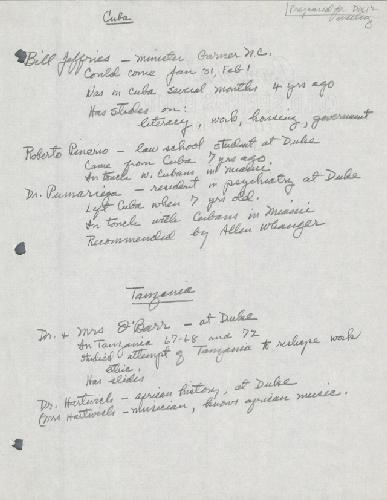 Cuba
Prepared for Dixie
Bill Jeffries - minister Garner N.C.
Could come Jan 31, Feb 1
Was in Cuba several months 4 yrs ago
Has slides on:
literacy, work, housing, government
Roberto Pinero - law school student at Duke
Came from Cuba 7 yrs ago.
In touch w. Cubans in Miami
Dr. Pumariega - resident in psychiatry at Duke
Left Cuba when 7 yrs old.
In touch with Cubans in Miami
Recommended by Allen Whanger
Tanzania
Dr. & Mrs O'Barr - at Duke
In Tanzania 67-68 and 72
studied attempt of Tanzania to reshape work
ethic.
Has slides
Dr. Hartwich - african history, at Duke
(Mrs Hartwich - musician, knows african music.